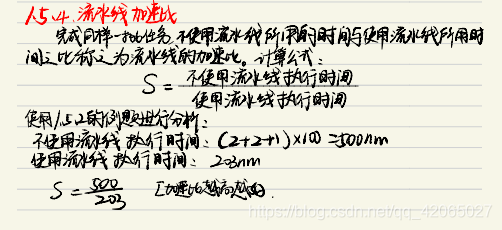 1.5.4. 流水线加速比
完成同样一批任务,不使用流水线所用的时间与使用流水线所用时
间之比称之为流水线的加速比。计算公式:
S = 不使用流水线执行时间
使用流水线执行时间
使用1.5.2的例题进行分析:
不使用流水线执行时间: (2+2+1)×100=500nm
使用流水线执行时间: 203nm
S = 500/203 [加速比越高越好]
https://blog.csdn.net/qq_42065027